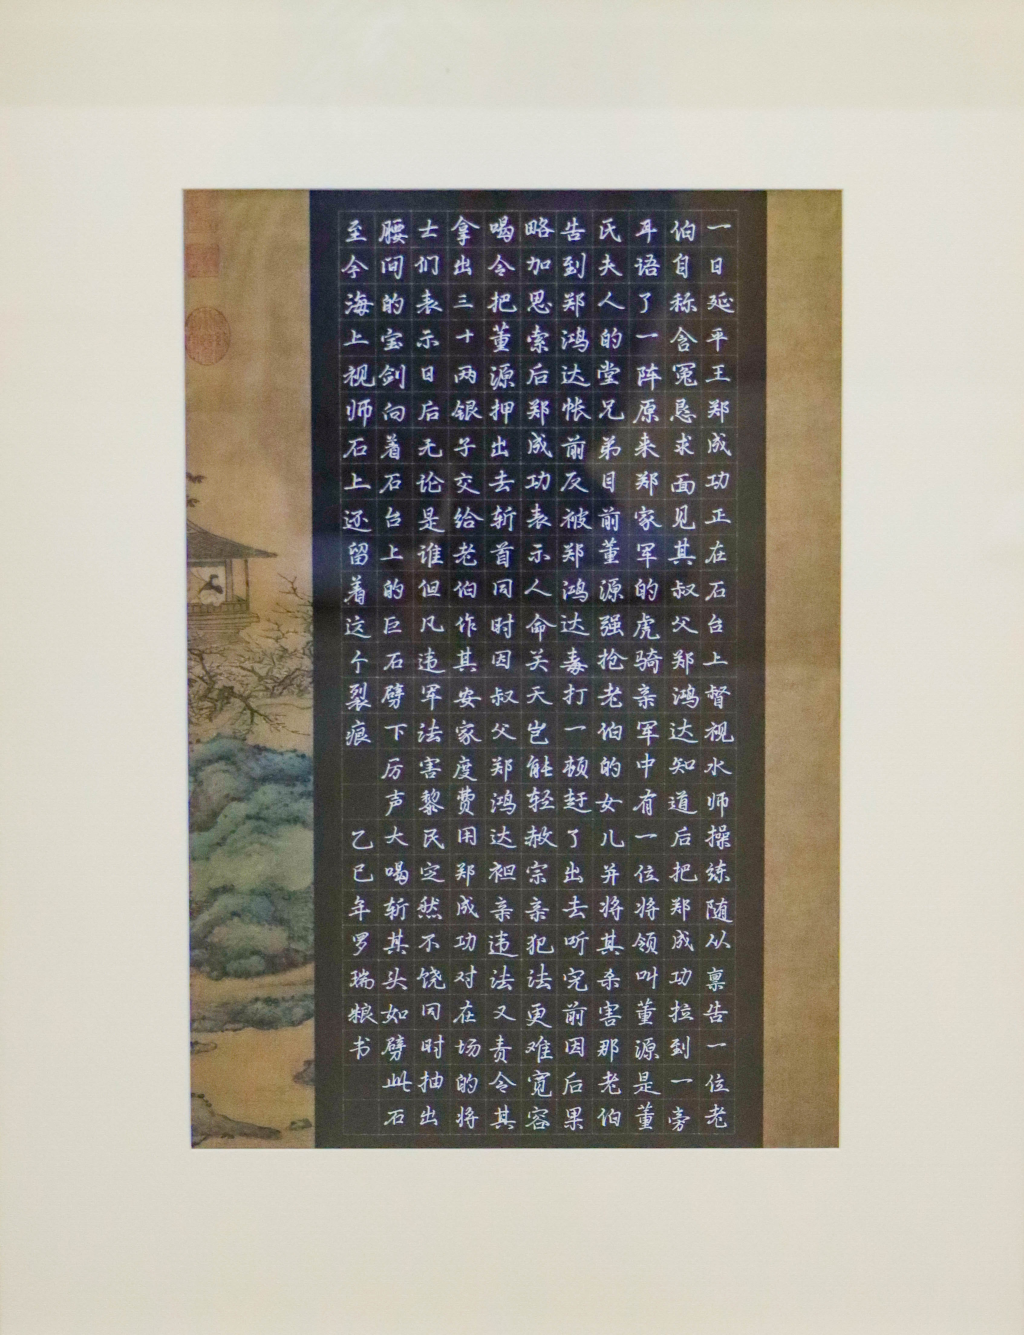 一日延平王郑成功正在石台上督视水师操练随从禀告一位老
伯自称含冤恳求面见其叔父郑鸿达知道后把郑成功拉到一旁
耳语了一阵原来郑家军的虎骑亲军中有一位将领叫董源是董
氏夫人的堂兄弟目前董源强抢老伯的女儿并将其杀害那老伯
告到郑鸿达帐前反被郑鸿达毒打一顿赶了出去听完前因后果
略加思索后郑成功表示人命关天岂能轻赦宗亲犯法更难宽容
喝令把董源押出去斩首同时因叔父郑鸿达袒亲违法又责令其
拿出三十两银子交给老伯作其安家度费用郑成功对在场的将
士们表示日后无论是谁但凡违军法害黎民定然不饶同时抽出
腰间的宝剑向着石台上的巨石劈下厉声大喝斩其头如劈此石
至今海上视师石上还留着这个裂痕 乙巳年罗瑞粮书